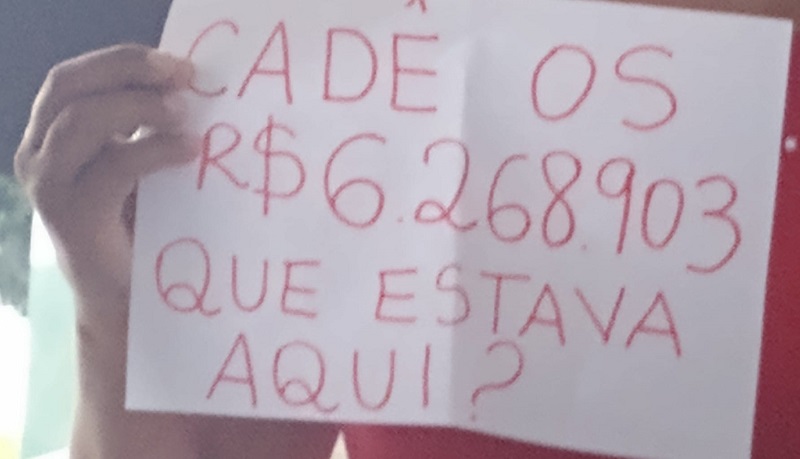 CADÊ OS
R$6.268.903
QUE ESTAVA
AQUI?